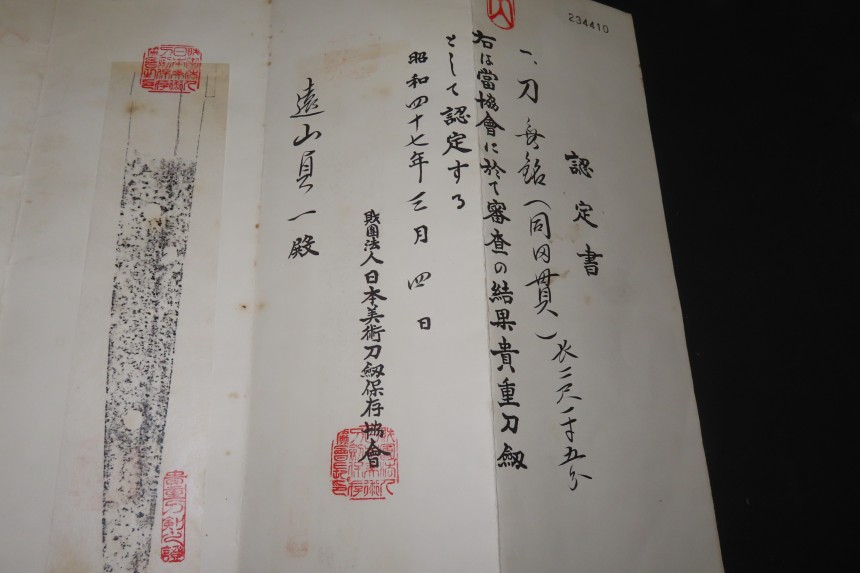 234410
認定書
一、刀 無銘(同田貫)長二尺一寸五分
右は當協會に於て審査の結果貴重刀劔
として認定する
昭和四十七年三月四日
財團法人日本美術刀劔保存協會
遠山貝一殿
貴重刀剣之證